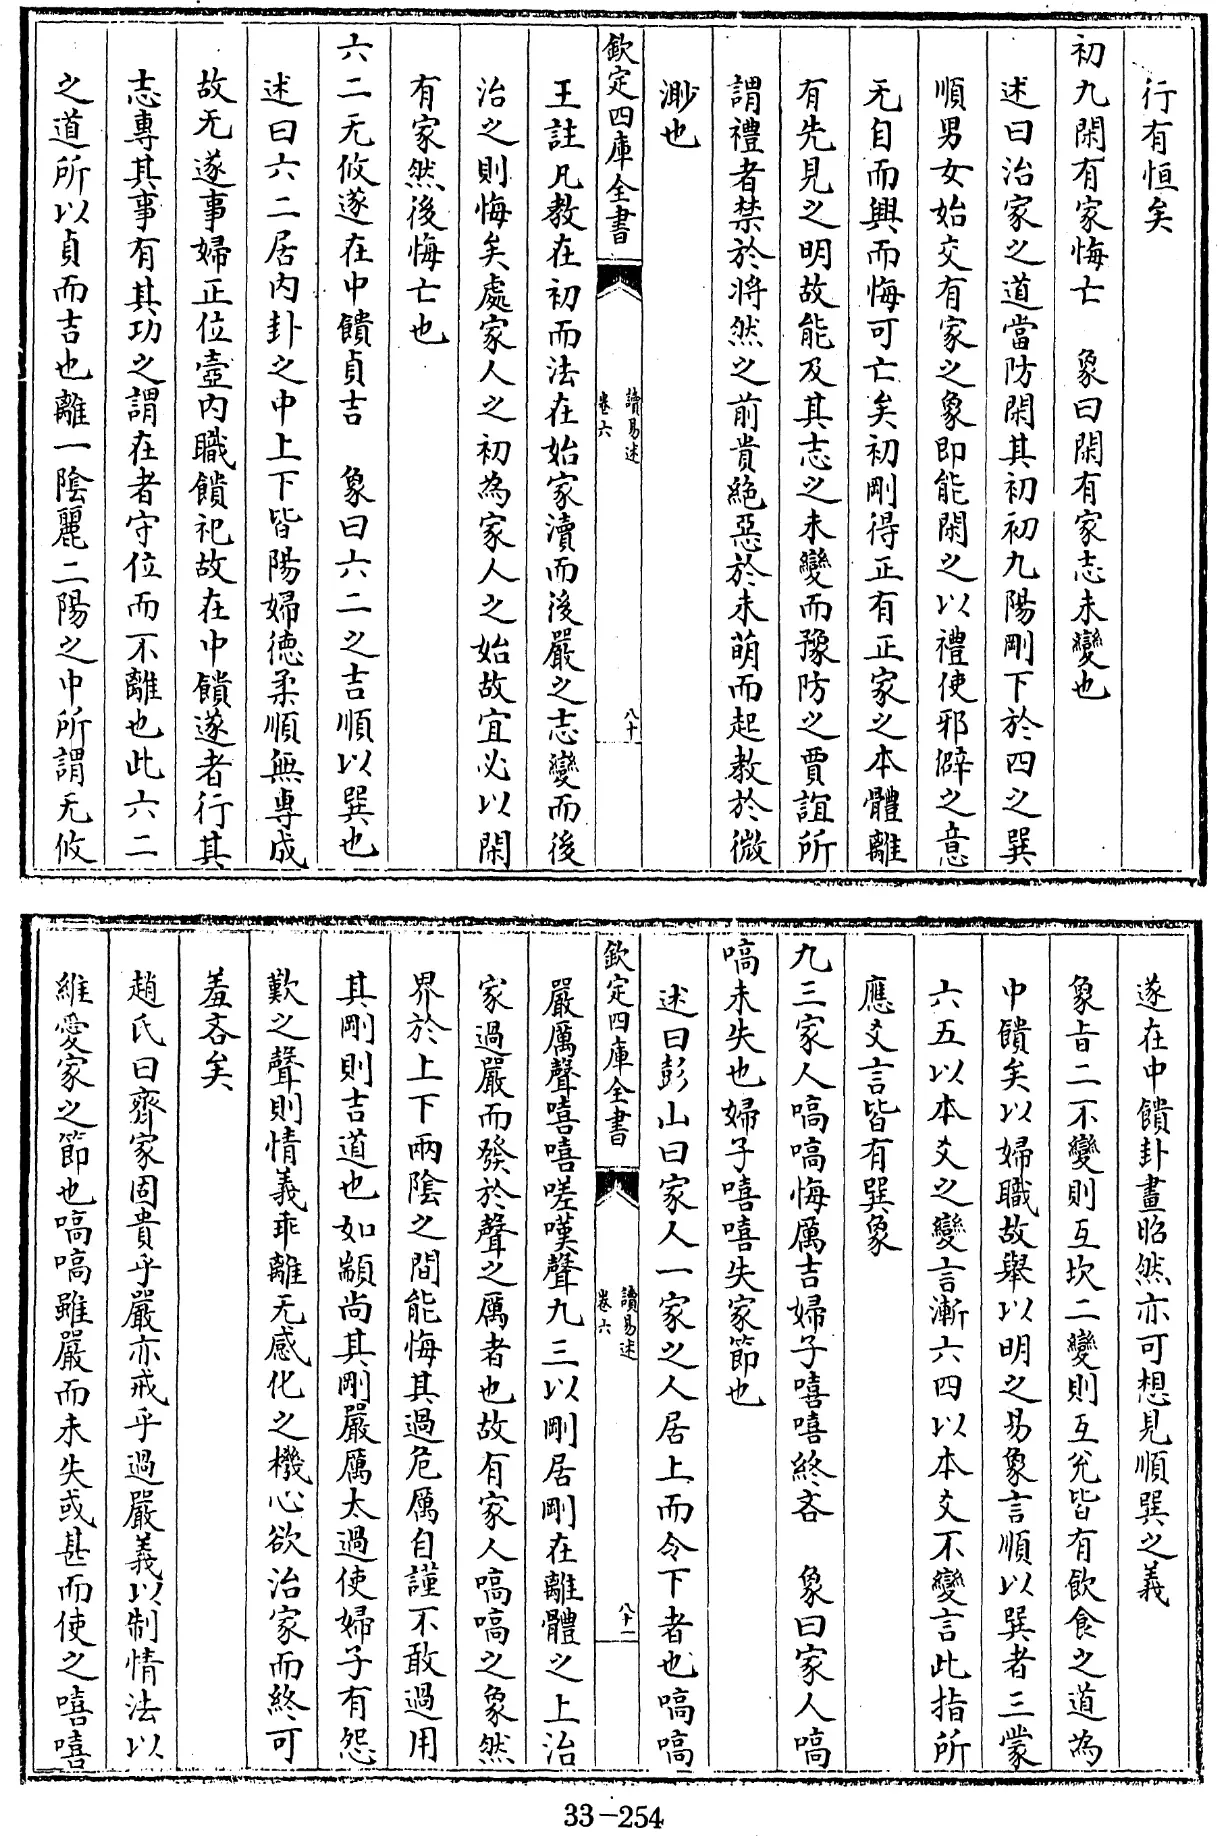 行有恒矣
初九閑有家悔亡　象曰閑有家志未變也
述曰治家之道當防閑其初初九陽剛下於四之巽
順男女始交有家之象即能閑之以禮使邪僻之意
无自而興而悔可亡矣初剛得正有正家之本體離
有先見之明故能及其志之未變而豫防之賈誼所
謂禮者禁於將然之前貴絶惡於未萌而起教於微
渺也
欽定四庫全書
讀易述
卷六
八十
王註凡教在初而法在始家瀆而後嚴之志變而後
治之則悔矣處家人之初為家人之始故宜必以閑
有家然後悔亡也
六二无攸遂在中饋貞吉　象曰六二之吉順以巽也
述曰六二居内卦之中上下皆陽婦德柔順無專成
故无遂事婦正位壼内職饋祀故在中饋遂者行其
志專其事有其功之謂在者守位而不離也此六二
之道所以貞而吉也離一陰麗二陽之中所謂无攸
遂在中饋卦畫昭然亦可想見順巽之義
象旨二不變則互坎二變則互兊皆有飲食之道為
中饋矣以婦職故舉以明之易象言順以巽者三蒙
六五以本爻之變言漸六四以本爻不變言此指所
應爻言皆有巽象
九三家人嗃嗃悔厲吉婦子嘻嘻終吝　象曰家人嗃
嗃未失也婦子嘻嘻失家節也
述曰彭山曰家人一家之人居上而令下者也嗃嗃
欽定四庫全書
讀易述
卷六
八十一
嚴厲聲嘻嘻嗟嘆聲九三以剛居剛在離體之上治
家過嚴而發於聲之厲者也故有家人嗃嗃之象然
界於上下兩陰之間能悔其過危厲自謹不敢過用
其剛則吉道也如顓尚其剛嚴厲太過使婦子有怨
歎之聲則情義乖離无感化之機心欲治家而終可
羞吝矣
趙氏曰齊家固貴乎嚴亦戒乎過嚴義以制情法以
維愛家之節也嗃嗃雖嚴而未失或甚而使之嘻嘻
33-254